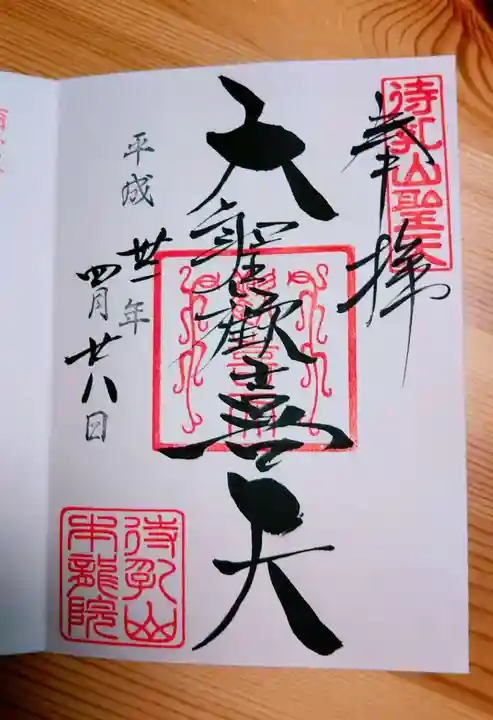 待乳山聖天
奉拝
大聖歓喜天
平成 卅一年
四月廿八日
待乳山
本龍院